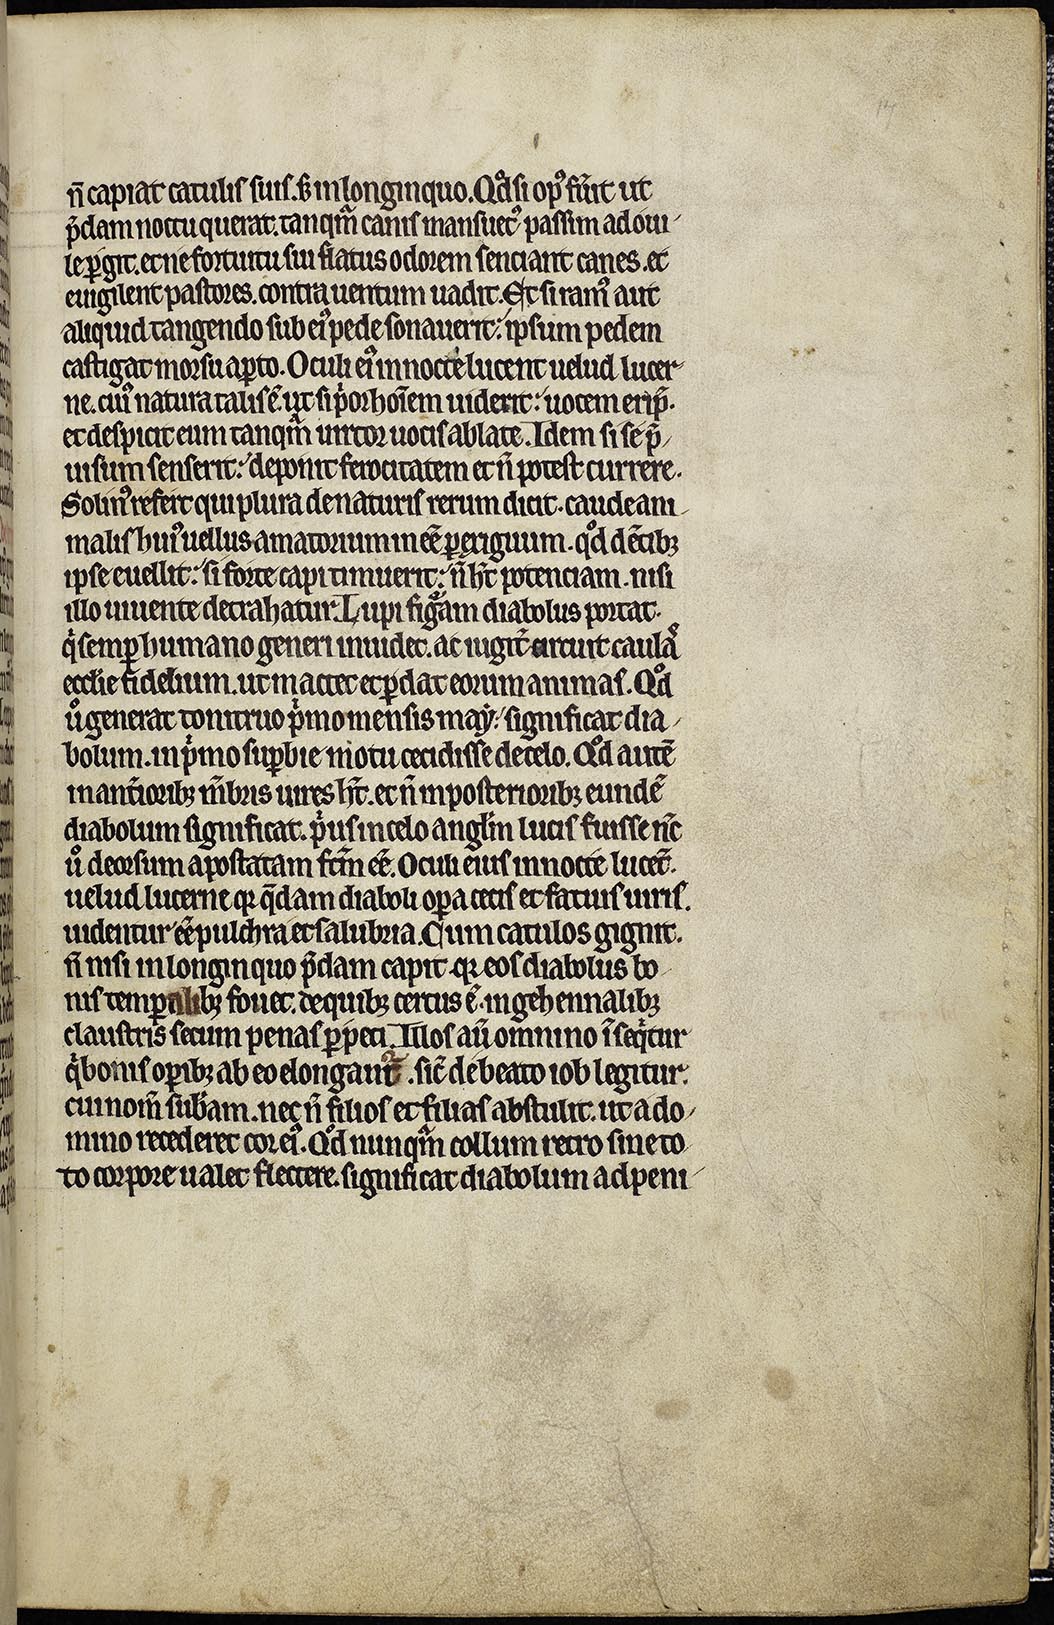 n̄ capiat catulis suis. s; in longinquo. Qd̉ si opꝰ fu̾it ut
p̄dam noctu querat. tanqᷓm canis mansuetꝰ passim ad oui-
le ꝑgit. et ne fortuitu sui flatus odorem senciant canes. et
euigilent pastores. contra uentum uadit. Et si ramꝰ aut
aliquid tangendo sub eiꝰ pede sonauerit: ipsum pedem
castigat morsu aꝑto. Oculi eiꝰ in nocte lucent uelud lucer-
ne. cuiꝰ natura talis ē. ut si pͥor hoīem uiderit: uocem erip̄.
et despicit eum tanqᷓm uictor uocis ablate. Idem si se p̄-
uisum senserit: deponit ferocitatem et n̄ potest currere.
Solinꝰ refert qui plura de naturis rerum dicit. caude ani-
malis huiꝰ uellus amatorium inēē perexiguum. qd̉ dētibꝫ
ipse euellit: si forte capi timuerit: n̄ hēt potenciam. nisi
illo uiuente detrahatur. Lupi figᷓam diabolus portat.
qͥ semꝑ humano generi inuidet. ac iugit̄ circuit caulas
ecclīe fidelium. ut mactet et ꝑdat eorum animas. Qd̉
u̾ generat tonitruo pͥmo mensis maẏ: significat dia-
bolum. in pͥmo suꝑbie motu cecidisse de celo. Qd̉ autē
in ant̾ioribꝫ m̄bris uires hēt. et n̄ in posterioribꝫ eundē
diabolum significat. pͥus in celo angl̄m lucis fuisse nc̄
u̾ deorsum apostatam fc̄m ēē. Oculi eius in nocte lucēt.
uelud lucerne qꝛ q̄dam diaboli oꝑa cecis et fatuis uiris.
uidentur ēē pulchra et salubria. Cum catulos gignit.
n̄ nisi in longinquo p̄dam capit. qꝛ eos diabolus bo-
nis temꝑalibꝫ fouet. de quibꝫ certus ē. in gehennalibꝫ
claustris secum penas ꝑpeti. Illos au̅ omnino īseqͥtur
qͥ bonis oꝑibꝫ ab eo elongant᷑. sic̄ de beato iob legitur.
cui nom̄ sub̄am. nec n̄ filios et filias abstulit. ut a do-
mino recederet cor eiꝰ. Qd̉ nunqᷓm collum retro sine to-
to corpore ualet flectere. significat diabolum ad peni-